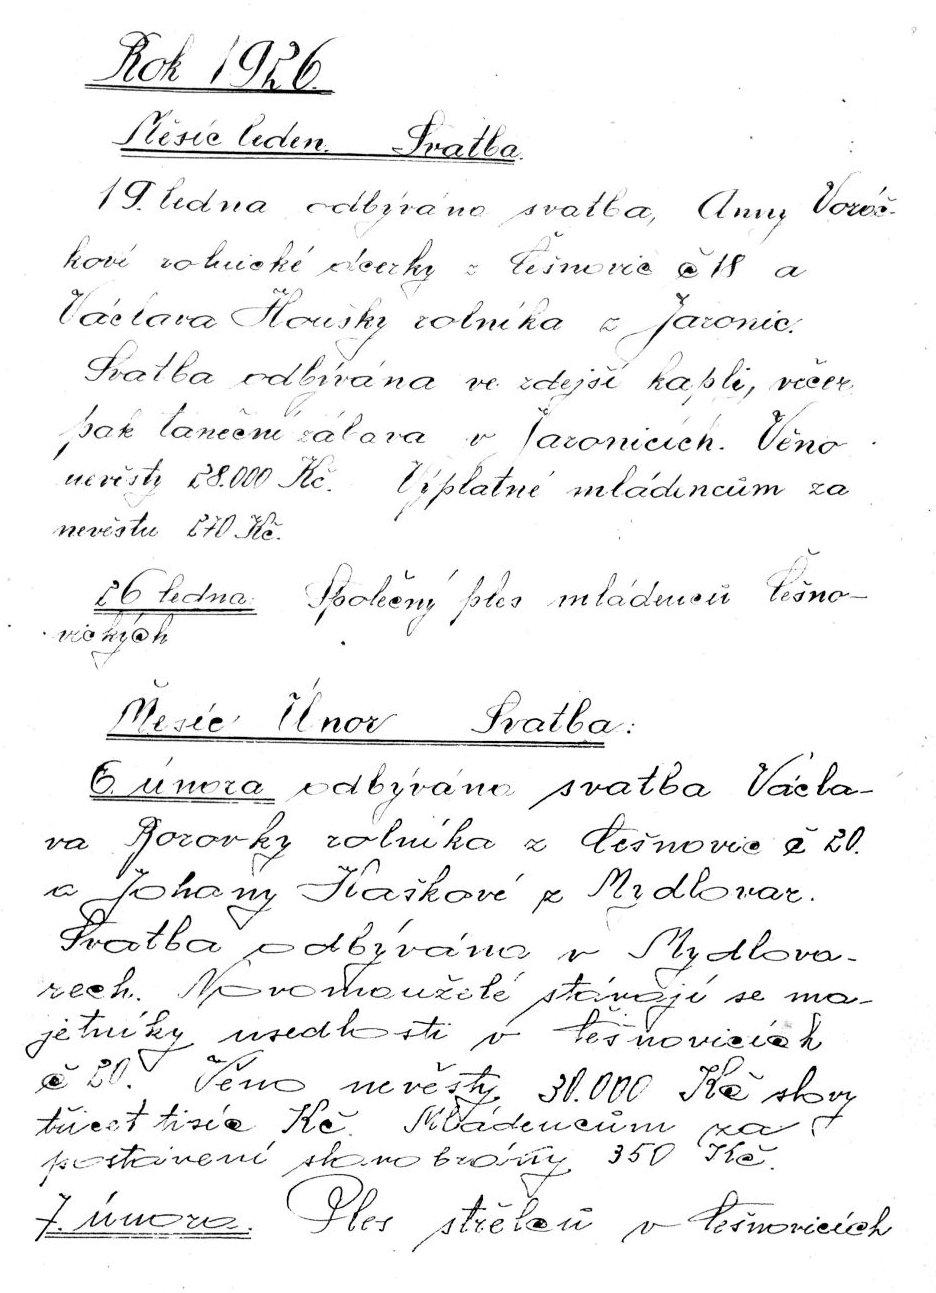 Rok 1926.
Měsíc leden. Svatba.
19. ledna odbývána svatba, Anny Voráč-
kovi rolnické dcerky z Těšnovic č 18 a
Václava Houšky rolníka z Jaronic.
Svatba odbývána ve zdejší kapli, večer
pak taneční zábava v Jaronicích. Věno
nevěsty 28.000 Kč. Výplatné mládencům za
nevěstu 270 Kč.
26 ledna. Společný ples mládenců Těšno-
vických
Měsíc Únor Svatba:
6. února odbývána svatba Václa-
va Borovky rolníka z Těšnovic č 20.
a Johany Haškové z Mydlovar.
Svatba odbývána v Mydlova-
rech. Novomanželé stávají se ma-
jetníky usedlosti v Těšnovicích
č 20. Věno nevěsty 30.000 Kč slovy
třicet tisíc Kč. Mládencům za
postavení slavobrány 350 Kč.
7. února. Ples střelců v Těšnovicích